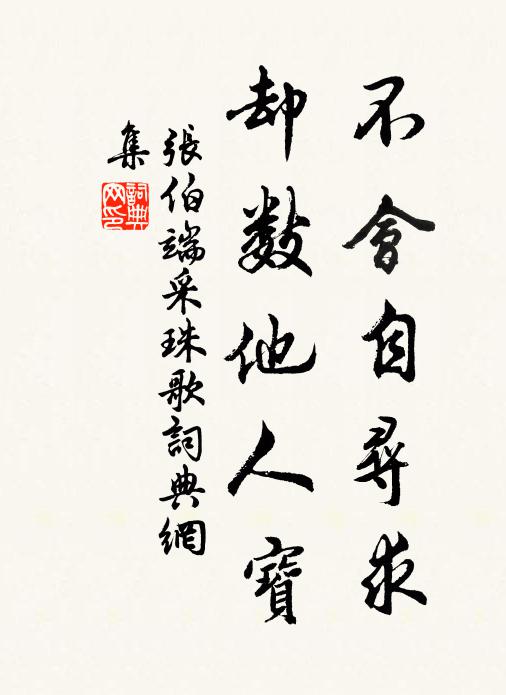 不會自尋求
却數他人寶
張伯端采珠歌詞典網
集
詞典网印